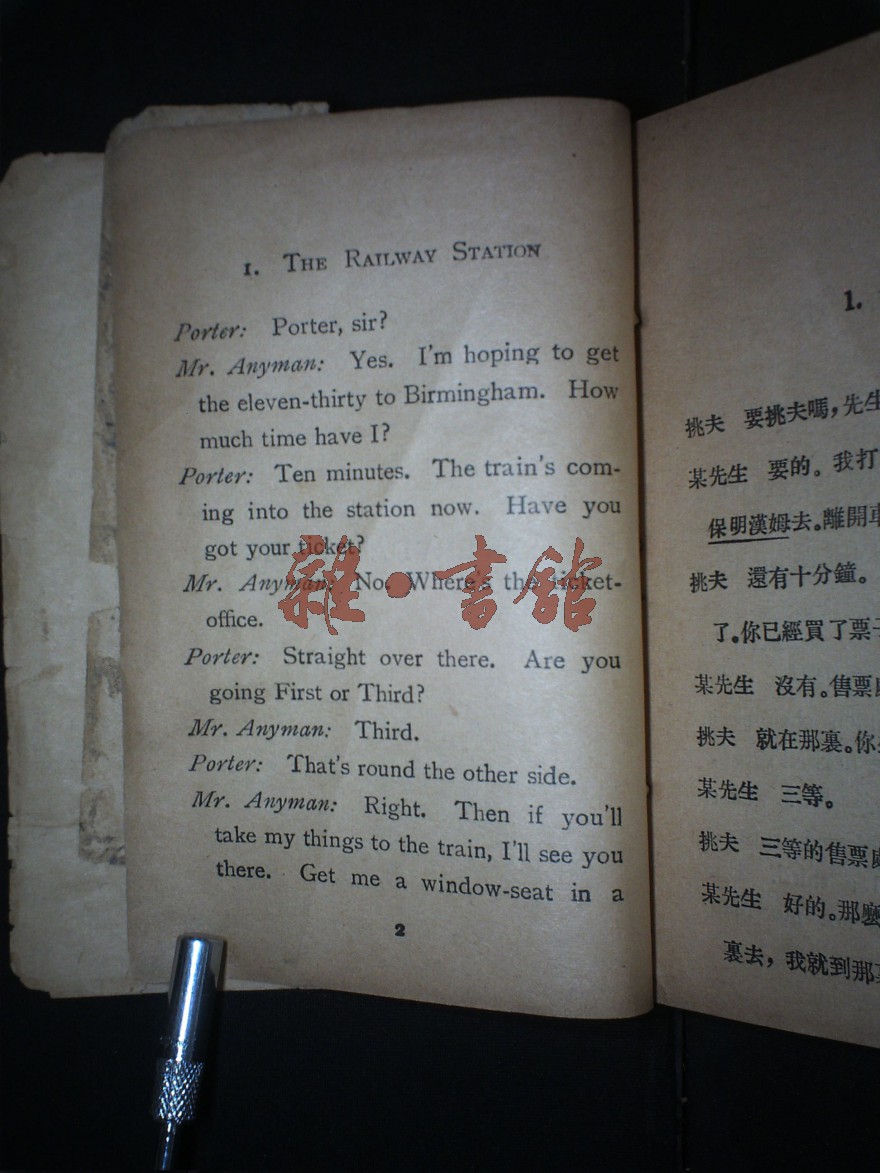 1. THE RAILWAY STATION
Porter: Porter, sir?
Mr. Anyman: Yes. I'm hoping to get
the eleven-thirty to Birmingham. How
much time have I?
Porter: Ten minutes. The train's com-
ing into the station now. Have you
got your ticket?
Mr. Anyman: No. Where's the ticket-
office.
Porter: Straight over there. Are you
going First or Third?
Mr. Anyman: Third.
Porter: That's round the other side.
Mr. Anyman: Right. Then if you'll
take my things to the train, I'll see you
there. Get me a window-seat in a
2
雜·書館
1.
挑夫 要挑夫嗎,先生
某先生 要的。我打
保明漢姆去。離開車
挑夫 還有十分鐘。
了。你已經買了票子
某先生 沒有。售票處
挑夫 就在那裏。你
某先生 三等。
挑夫 三等的售票處
某先生 好的。那麼
裏去,我就到那裏